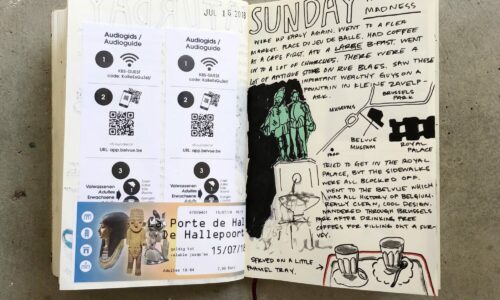 JUL 15 2018
Audiogids /
Audioguide
1
KBS-GUEST
2
URL: app.belvue.be
3
Volwassenen
Adultes
Erwachsene
Audiogids /
Audioguide
1
KBS-GUEST
2
URL: app.belvue.be
3
Volwassenen
Adultes
Erwachsene
Porte de Hal
De Hallepoort
15/07/18
SUNDAY
MADNESS
WOKE UP EARLY AGAIN. WENT TO A FLEA
MARKET. PLACE DU JEU DE BALLE. HAD COFFEE
AT A CAFE FIRST. ATE A LARGE B-FAST. WENT
IN TO A LOT OF CHURCHES. THERE WERE A
LOT OF ANTIQUE STORES ON RUE BLAES. SAW THESE
IMPORTANT WEALTHY GUYS ON A
FOUNTAIN IN KLEINE ZAVELP-
ARK.
BRUSSELS
PARK
MUSEUMS
BELVUE
MUSEUM
ROYAL
PALACE
TRIED TO GET IN THE ROYAL
PALACE, BUT THE SIDEWALKS
WERE ALL BLOCKED OFF.
WENT TO THE BELVUE WHICH
WAS ALL HISTORY OF BELGIUM.
REALLY CLEAN, COOL DESIGN.
WANDERED THROUGH BRUSSELS
PARK AFTER DRINKING FREE
COFFEES FOR FILLING OUT A SUR-
VEY.
SERVED ON A LITTLE
ENAMEL TRAY.